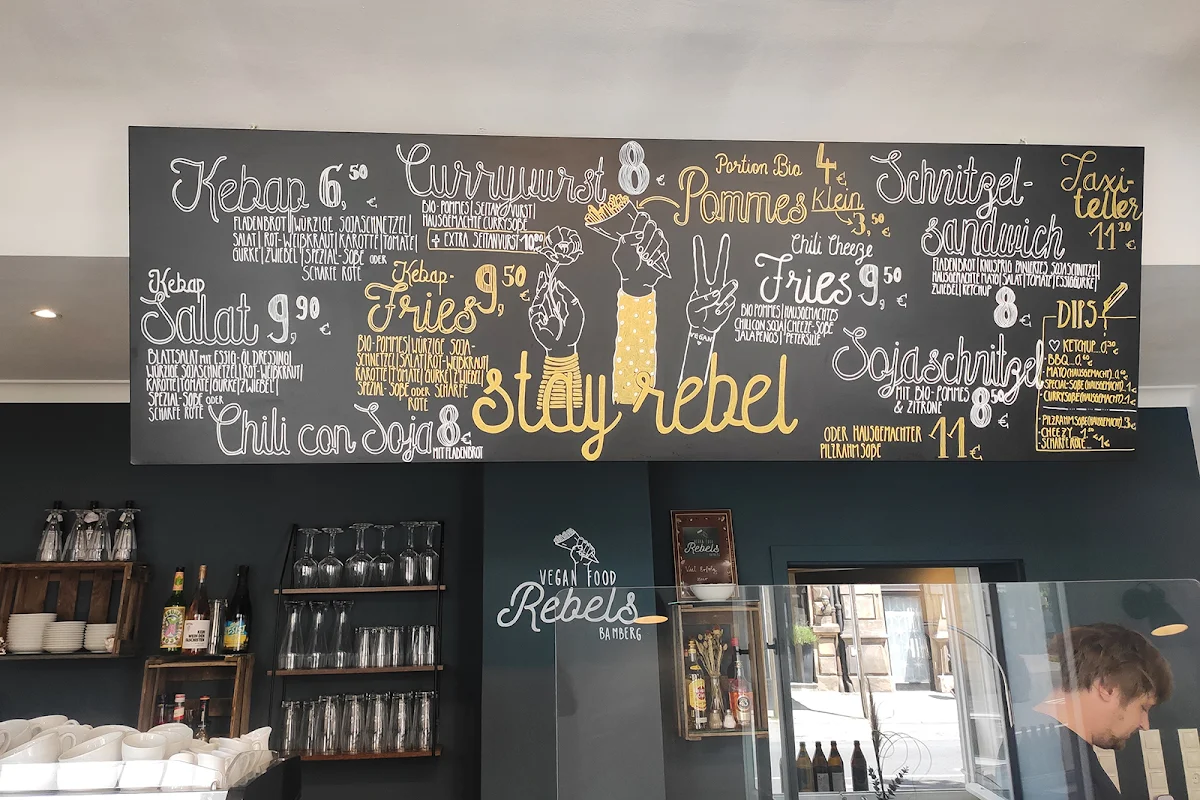 Kebap 6,50 €
FLADENBROT|WÜRZIGE SOJASCHNETZEL|
SALAT|ROT-WEIßKRAUT|KAROTTE|TOMATE|
GURKE|ZWIEBEL|SPEZIAL-SOßE ODER
SCHARFE ROTE
Currywurst 8 €
BIO-POMMES|SEITANWURST|
HAUSGEMACHTE CURRYSOßE
+ EXTRA SEITANWURST 10,80
Portion Bio 4 €
Pommes Klein
3,50 €
Schnitzel-
sandwich
FLADENBROT|KNUSPRIG PANIERTES SOJASCHNITZEL|
HAUSGEMACHTE MAYO|SALAT|TOMATE|ESSIGGURKE|
ZWIEBEL|KETCHUP 8 €
Taxi-
teller
11,20 €
Kebap
Salat 9,90 €
BLATTSALAT MIT ESSIG-ÖL DRESSING|
WÜRZIGE SOJASCHNETZEL|ROT-WEIßKRAUT|
KAROTTE|TOMATE|GURKE|ZWIEBEL|
SPEZIAL-SOßE ODER
SCHARFE ROTE
Kebap-
Fries 9,50 €
BIO-POMMES|WÜRZIGE SOJA-
SCHNETZEL|SALAT|ROT-WEIßKRAUT|
KAROTTE|TOMATE|GURKE|ZWIEBEL|
SPEZIAL-SOßE ODER SCHARFE
ROTE
Chili Cheeze
Fries 9,50 €
BIO POMMES|HAUSGEMACHTES
CHILI CON SOJA|CHEEZE-SOßE
JALAPENOS|PETERSILIE
VEGAN
stay rebel
Chili con Soja 8 €
MIT FLADENBROT
Sojaschnitzel
MIT BIO-POMMES
& ZITRONE 8,50 €
ODER HAUSGEMACHTER
PILZRAHMSOßE 11 €
DIPS
KETCHUP..0,30 €
-BBQ..0,60 €
-MAYO(HAUSGEMACHT)..0,80
-SPECIAL-SOßE(HAUSGEMACHT)..1 €
-CURRYSOßE(HAUSGEMACHT)..1 €
-PILZRAHMSOßE(HAUSGEMACHT)..3 €
-CHEEZY
-SCHARFE ROTE 1 €
VEGAN FOOD
Rebels
BAMBERG
VEGAN FOOD
Rebels